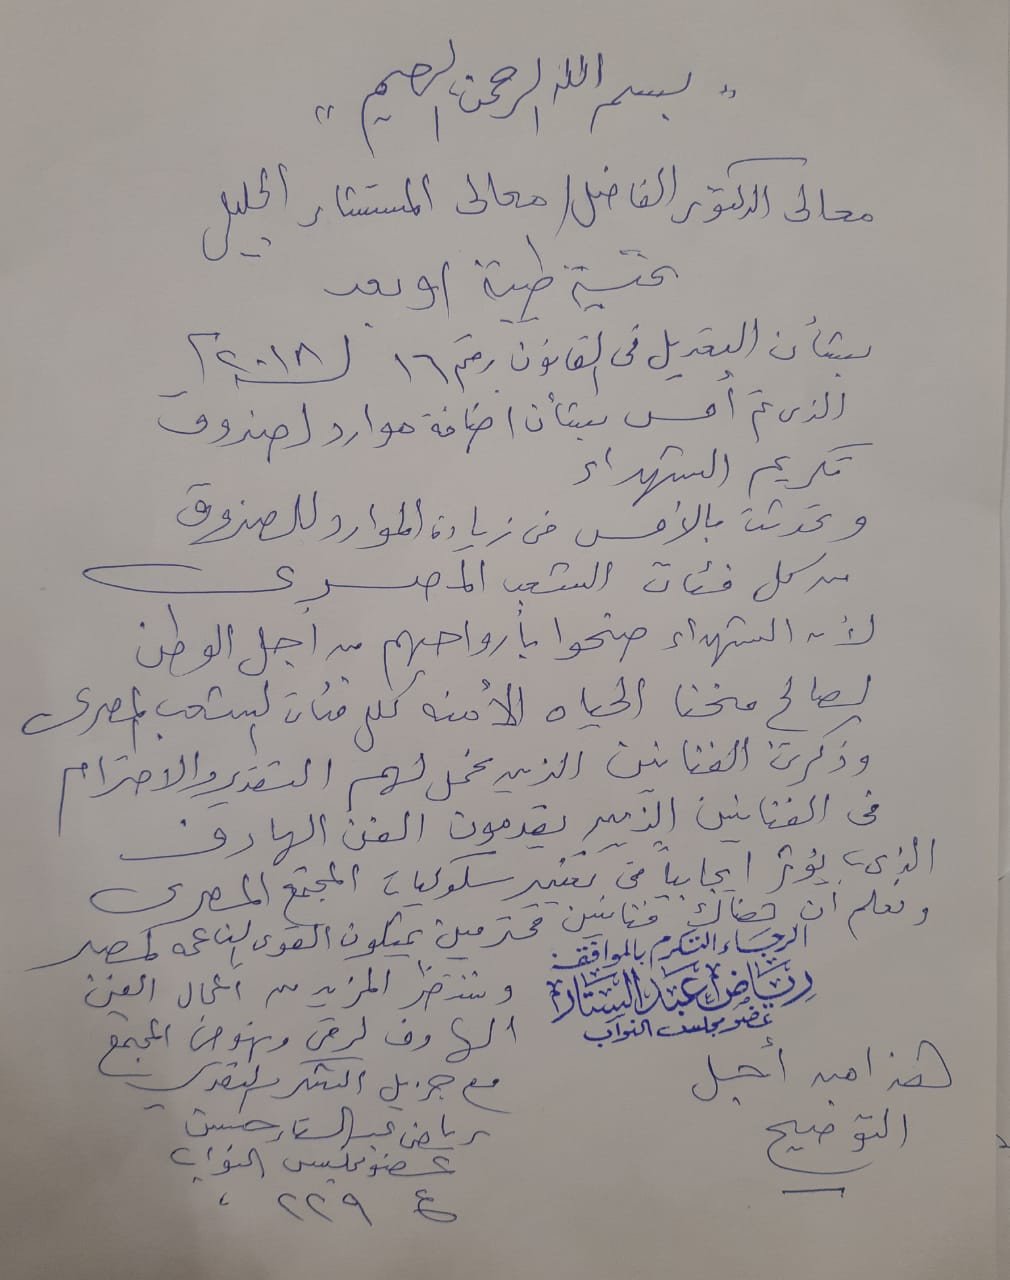 " بسم الله الرحمن الرحيم "
معالى الدكتور الفاضل / معالى المستشار الجليل
تحية طيبة او بعد
بشأن التعديل فى القانون رقم ١٦ لـ ٢٠١٨
الذى تم أمس بشأن اضافة موارد لصندوق
تكريم الشهداء
وتحدثت بالأمس عن زيادة الموارد للصندوق
من كل فئات الشعب المصرى
لأن الشهداء ضحوا بأرواحهم من أجل الوطن
لصالح منحنا الحياه الأمنه لكل فئات الشعب المصرى
وذكرت الفنانين الذين نحمل لهم التقدير والاحترام
فى الفنانين الذين يقدمون الفن الهادف
الذى يؤثر ايجابياً فى تغيير سلوكيات المجتمع المصرى
ونعلم أن هناك فنانين محترمين يمثلون القوى الناعمه لمصر
وننتظر المزيد من أعمال الفن
الهادف لرقى ونهوض المجتمع
مع جزيل الشكر والتقدير
رياض عبد الستار حسن
عضو مجلس النواب
ع ٢٢٩
الرجاء التكرم بالموافقة
رياض عبد الستار
عضو مجلس النواب
هذا من أجل
التوضيح